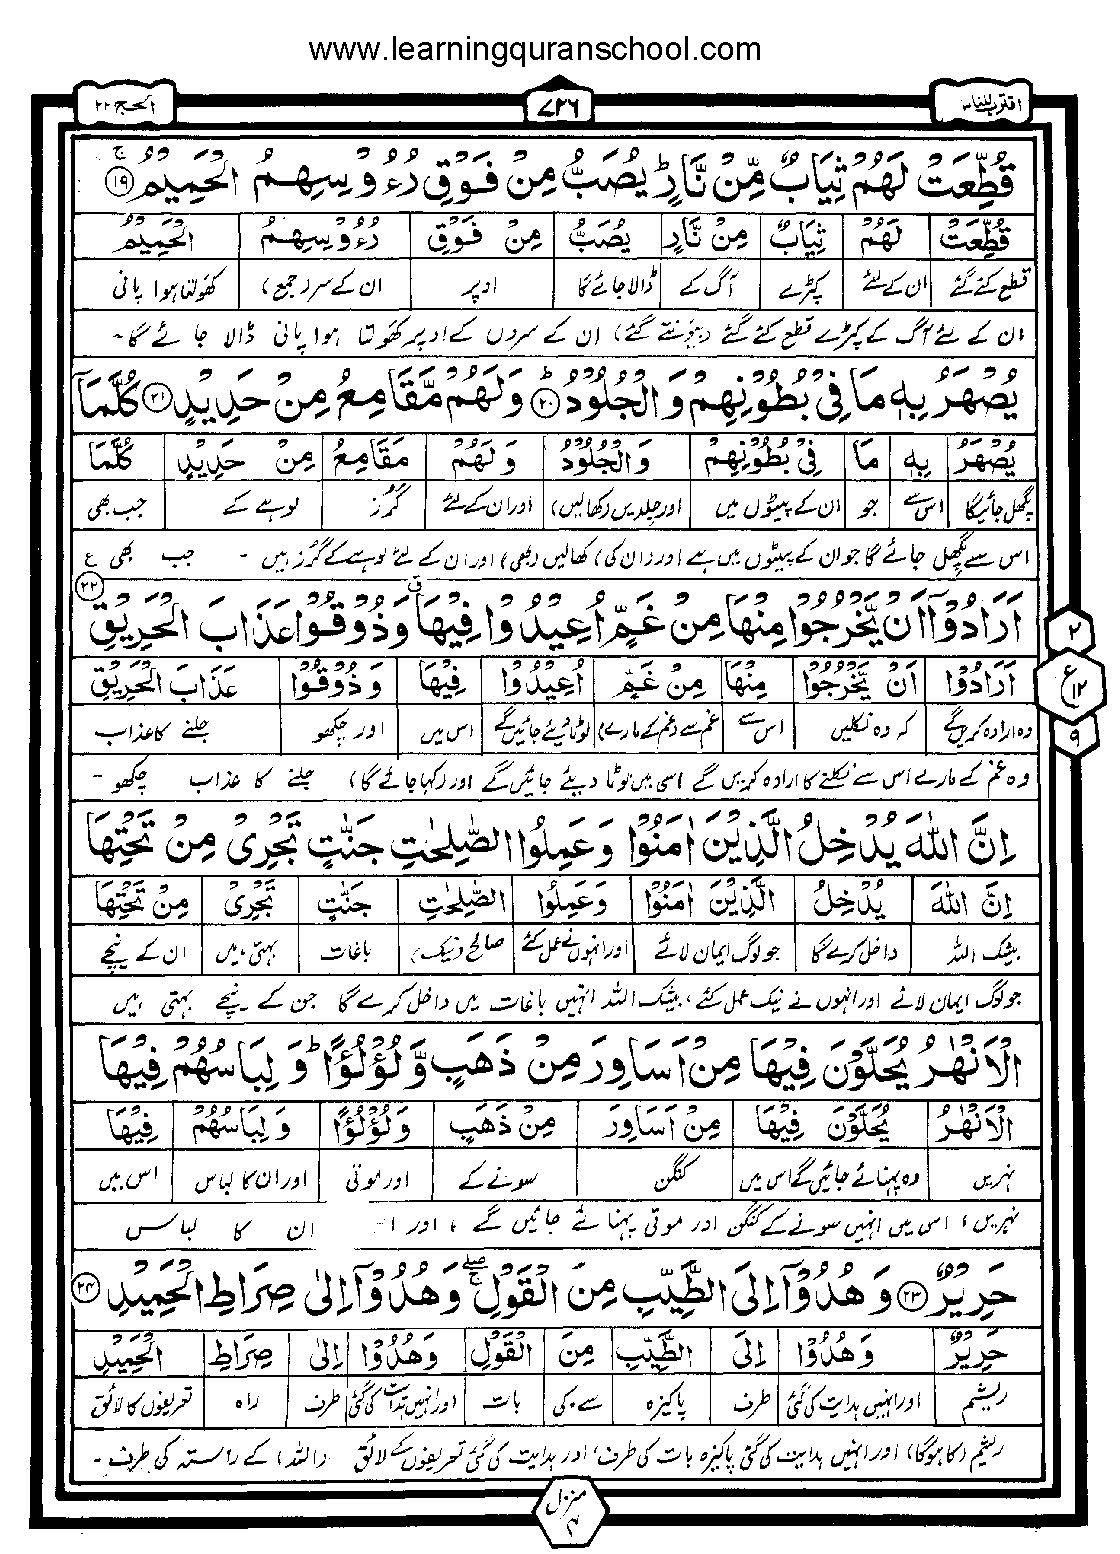 www.learningquranschool.com
اقترب للناس ۷۲۶ الحج ۲۲
قُطِّعَتْ لَهُمْ ثِيَابٌ مِّنْ نَّارٍ ؕ يُصَبُّ مِنْ فَوْقِ رُءُوْسِهِمُ الْحَمِيْمُ ۚ ۱۹
قُطِّعَتْ لَهُمْ ثِيَابٌ مِنْ نَّارٍ يُصَبُّ مِنْ فَوْقِ رُءُوْسِهِمُ الْحَمِيْمُ
قطع کئے گئے ان کے لئے کپڑے آگ کے ڈالا جائے گا اوپر ان کے سر (جمع) کھولتا ہوا پانی
ان کے لئے آگ کے کپڑے قطع کئے گئے (بیونتے گئے) ان کے سروں کے اوپر کھولتا ہوا پانی ڈالا جائے گا۔
يُصْهَرُ بِهٖ مَا فِيْ بُطُوْنِهِمْ وَالْجُلُوْدُ ؕ ۲۰ وَلَهُمْ مَّقَامِعُ مِنْ حَدِيْدٍ ۲۱ كُلَّمَاۤ
يُصْهَرُ بِهٖ مَا فِيْ بُطُوْنِهِمْ وَالْجُلُوْدُ وَلَهُمْ مَقَامِعُ مِنْ حَدِيْدٍ كُلَّمَا
پگھل جائیگا اس سے جو ان کے پیٹوں میں اور جلدیں (کھالیں) اور ان کے لئے گرز لوہے کے جب بھی
اس سے پگھل جائے گا جو ان کے پیٹوں میں ہے اور (ان کی) کھالیں (بھی) اور ان کے لئے لوہے کے گرز ہیں - جب بھی ع
اَرَادُوْۤا اَنْ يَّخْرُجُوْا مِنْهَا مِنْ غَمٍّ اُعِيْدُوْا فِيْهَا ۗ وَذُوْقُوْا عَذَابَ الْحَرِيْقِ ۲۲
اَرَادُوْا اَنْ يَّخْرُجُوْا مِنْهَا مِنْ غَمٍّ اُعِيْدُوْا فِيْهَا وَذُوْقُوْا عَذَابَ الْحَرِيْقِ
وہ ارادہ کریں گے کہ وہ نکلیں اس سے غم سے (غم کے مارے) لوٹا دیئے جائیں گے اس میں اور چکھو جلنے کا عذاب
وہ غم کے مارے اس سے نکلنے کا ارادہ کریں گے اسی میں لوٹا دیئے جائیں گے اور (کہا جائے گا) جلنے کا عذاب چکھو -
۲ ع ۱۲ ۹
اِنَّ اللّٰهَ يُدْخِلُ الَّذِيْنَ اٰمَنُوْا وَعَمِلُوا الصّٰلِحٰتِ جَنّٰتٍ تَجْرِيْ مِنْ تَحْتِهَا
اِنَّ اللّٰهَ يُدْخِلُ الَّذِيْنَ اٰمَنُوْا وَعَمِلُوْا الصّٰلِحٰتِ جَنّٰتٍ تَجْرِيْ مِنْ تَحْتِهَا
بیشک اللہ داخل کرے گا جو لوگ ایمان لائے اور انہوں نے عمل کئے صالح (نیک) باغات بہتی ہیں ان کے نیچے
جو لوگ ایمان لائے اور انہوں نے نیک عمل کئے، بیشک اللہ انہیں باغات میں داخل کرے گا جن کے نیچے بہتی ہیں
الْاَنْهٰرُ يُحَلَّوْنَ فِيْهَا مِنْ اَسَاوِرَ مِنْ ذَهَبٍ وَّلُؤْلُؤًا ؕ وَلِبَاسُهُمْ فِيْهَا
الْاَنْهٰرُ يُحَلَّوْنَ فِيْهَا مِنْ اَسَاوِرَ مِنْ ذَهَبٍ وَلُؤْلُؤًا وَلِبَاسُهُمْ فِيْهَا
نہریں وہ پہنائے جائیں گے اس میں کنگن سونے کے اور موتی اور ان کا لباس اس میں
نہریں، اس میں انہیں سونے کے کنگن اور موتی پہنائے جائیں گے، اور ا- ان کا لباس
حَرِيْرٌ ۲۳ وَهُدُوْۤا اِلَى الطَّيِّبِ مِنَ الْقَوْلِ ۖۚ وَهُدُوْۤا اِلٰى صِرَاطِ الْحَمِيْدِ ۲۴
حَرِيْرٌ وَهُدُوْا اِلَى الطَّيِّبِ مِنَ الْقَوْلِ وَهُدُوْا اِلٰى صِرَاطِ الْحَمِيْدِ
ریشم اور انہیں ہدایت کی گئی طرف پاکیزہ سے ۔ کی بات اور انہیں ہدایت کی گئی طرف راہ تعریفوں کا لائق
ریشم (کا ہوگا) اور انہیں ہدایت کی گئی پاکیزہ بات کی طرف، اور ہدایت کی گئی تعریفوں کے لائق (اللہ) کے راستہ کی طرف -
منزل ۴